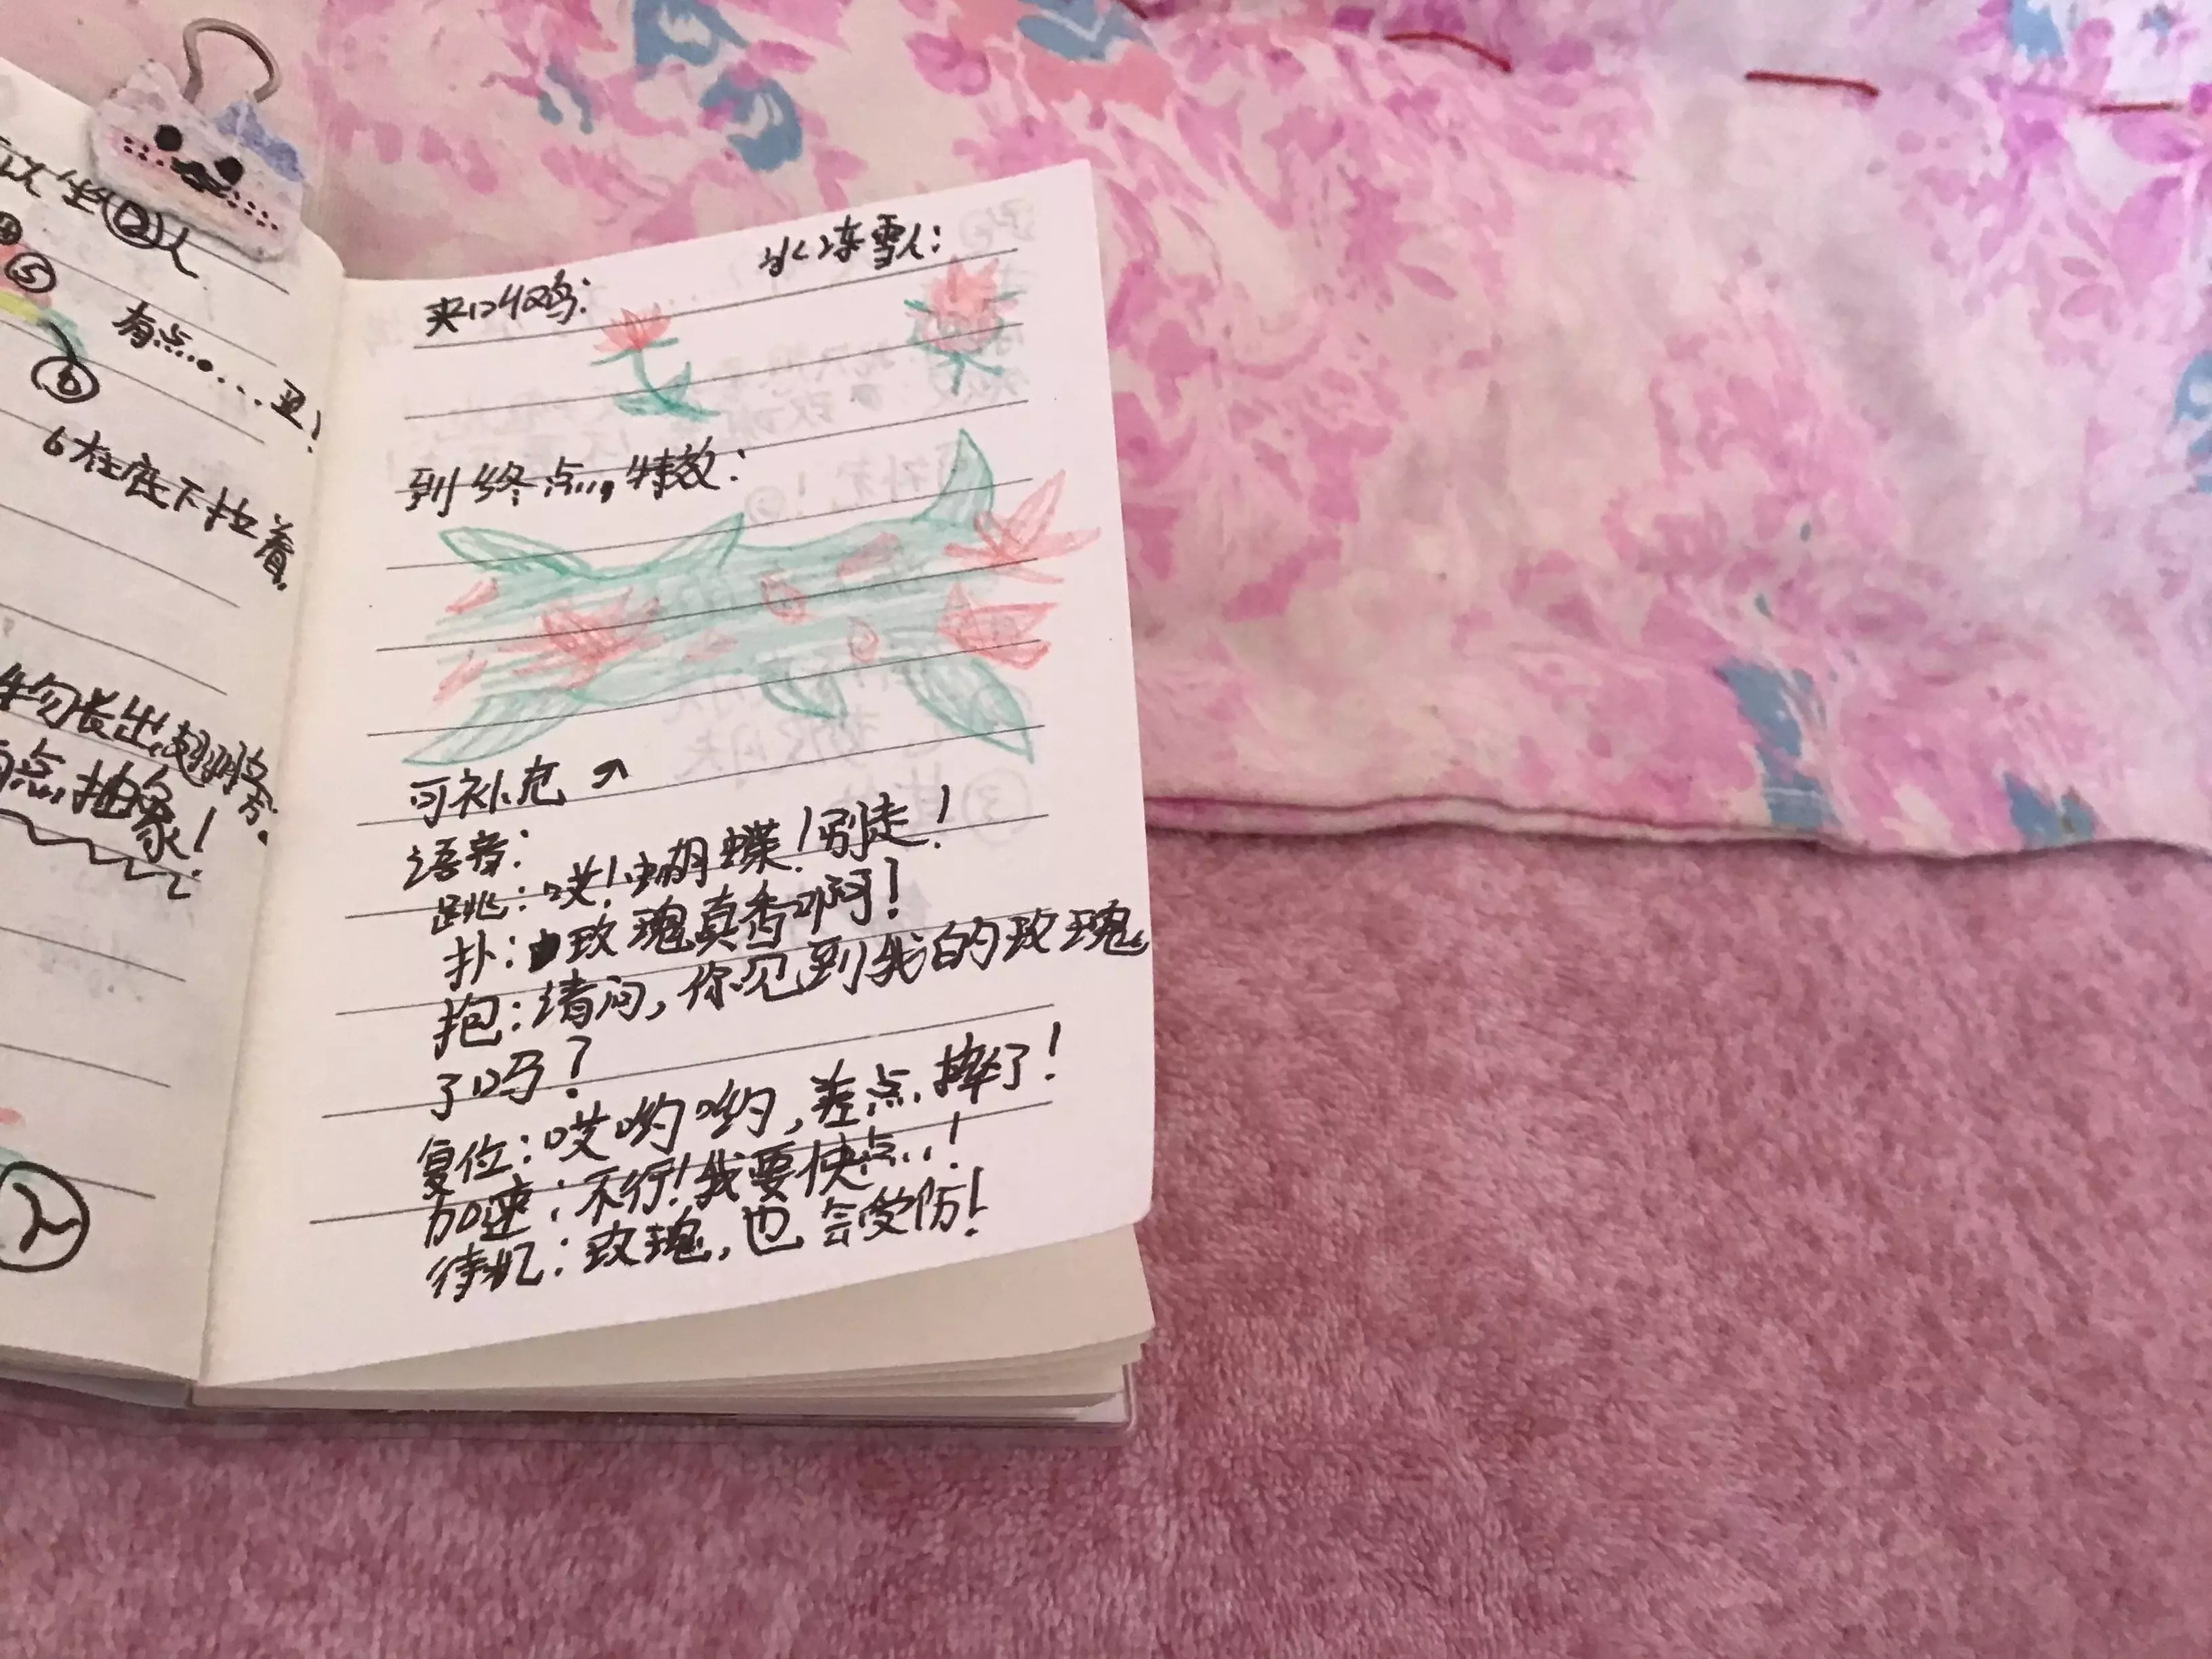 以坐12人
⑤
有点……丑!
⑥
6在底下拉着。
物长出翅膀。
有点抽象!
2
夹叫鸡:
冰冻雪人:
到终点,特效:
可补充
语音:
跳:哎!蝴蝶!别走!
扑:玫瑰真香啊!
抱:请问,你见到我的玫瑰
了吗?
复位:哎哟哟,差点摔了!
加速:不行!我要快点!
待机:玫瑰,也会受伤!